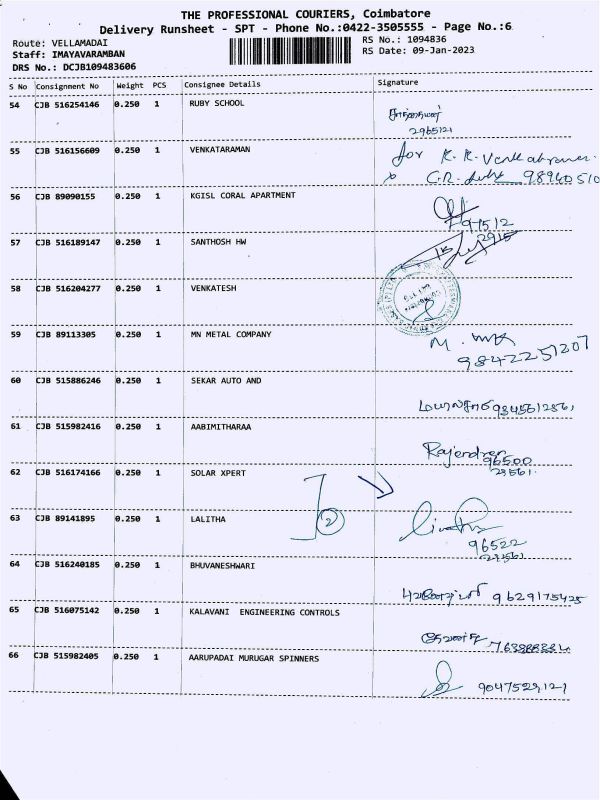 THE PROFESSIONAL COURIERS, Coimbatore
Delivery Runsheet - SPT - Phone No.:0422-3505555 - Page No.:6
Route: VELLAMADAI RS No.: 1094836
Staff: IMAYAVARAMBAN RS Date: 09-Jan-2023
DRS No.: DCJB109483606
S No Consignment No Weight PCS Consignee Details Signature
54 CJB 516254146 0.250 1 RUBY SCHOOL
55 CJB 516156609 0.250 1 VENKATARAMAN
for K.R. Venkataraman
C.R. 98940510
56 CJB 89090155 0.250 1 KGISL CORAL APARTMENT
57 CJB 516189147 0.250 1 SANTHOSH HW
58 CJB 516204277 0.250 1 VENKATESH
59 CJB 89113305 0.250 1 MN METAL COMPANY
M.
9842251207
60 CJB 515886246 0.250 1 SEKAR AUTO AND
61 CJB 515982416 0.250 1 AABIMITHARAA
Rajendren
96500
29561
62 CJB 516174166 0.250 1 SOLAR XPERT
63 CJB 89141895 0.250 1 LALITHA
2
96522
29561
64 CJB 516240185 0.250 1 BHUVANESHWARI
9629175425
65 CJB 516075142 0.250 1 KALAVANI ENGINEERING CONTROLS
66 CJB 515982405 0.250 1 AARUPADAI MURUGAR SPINNERS
9047529121